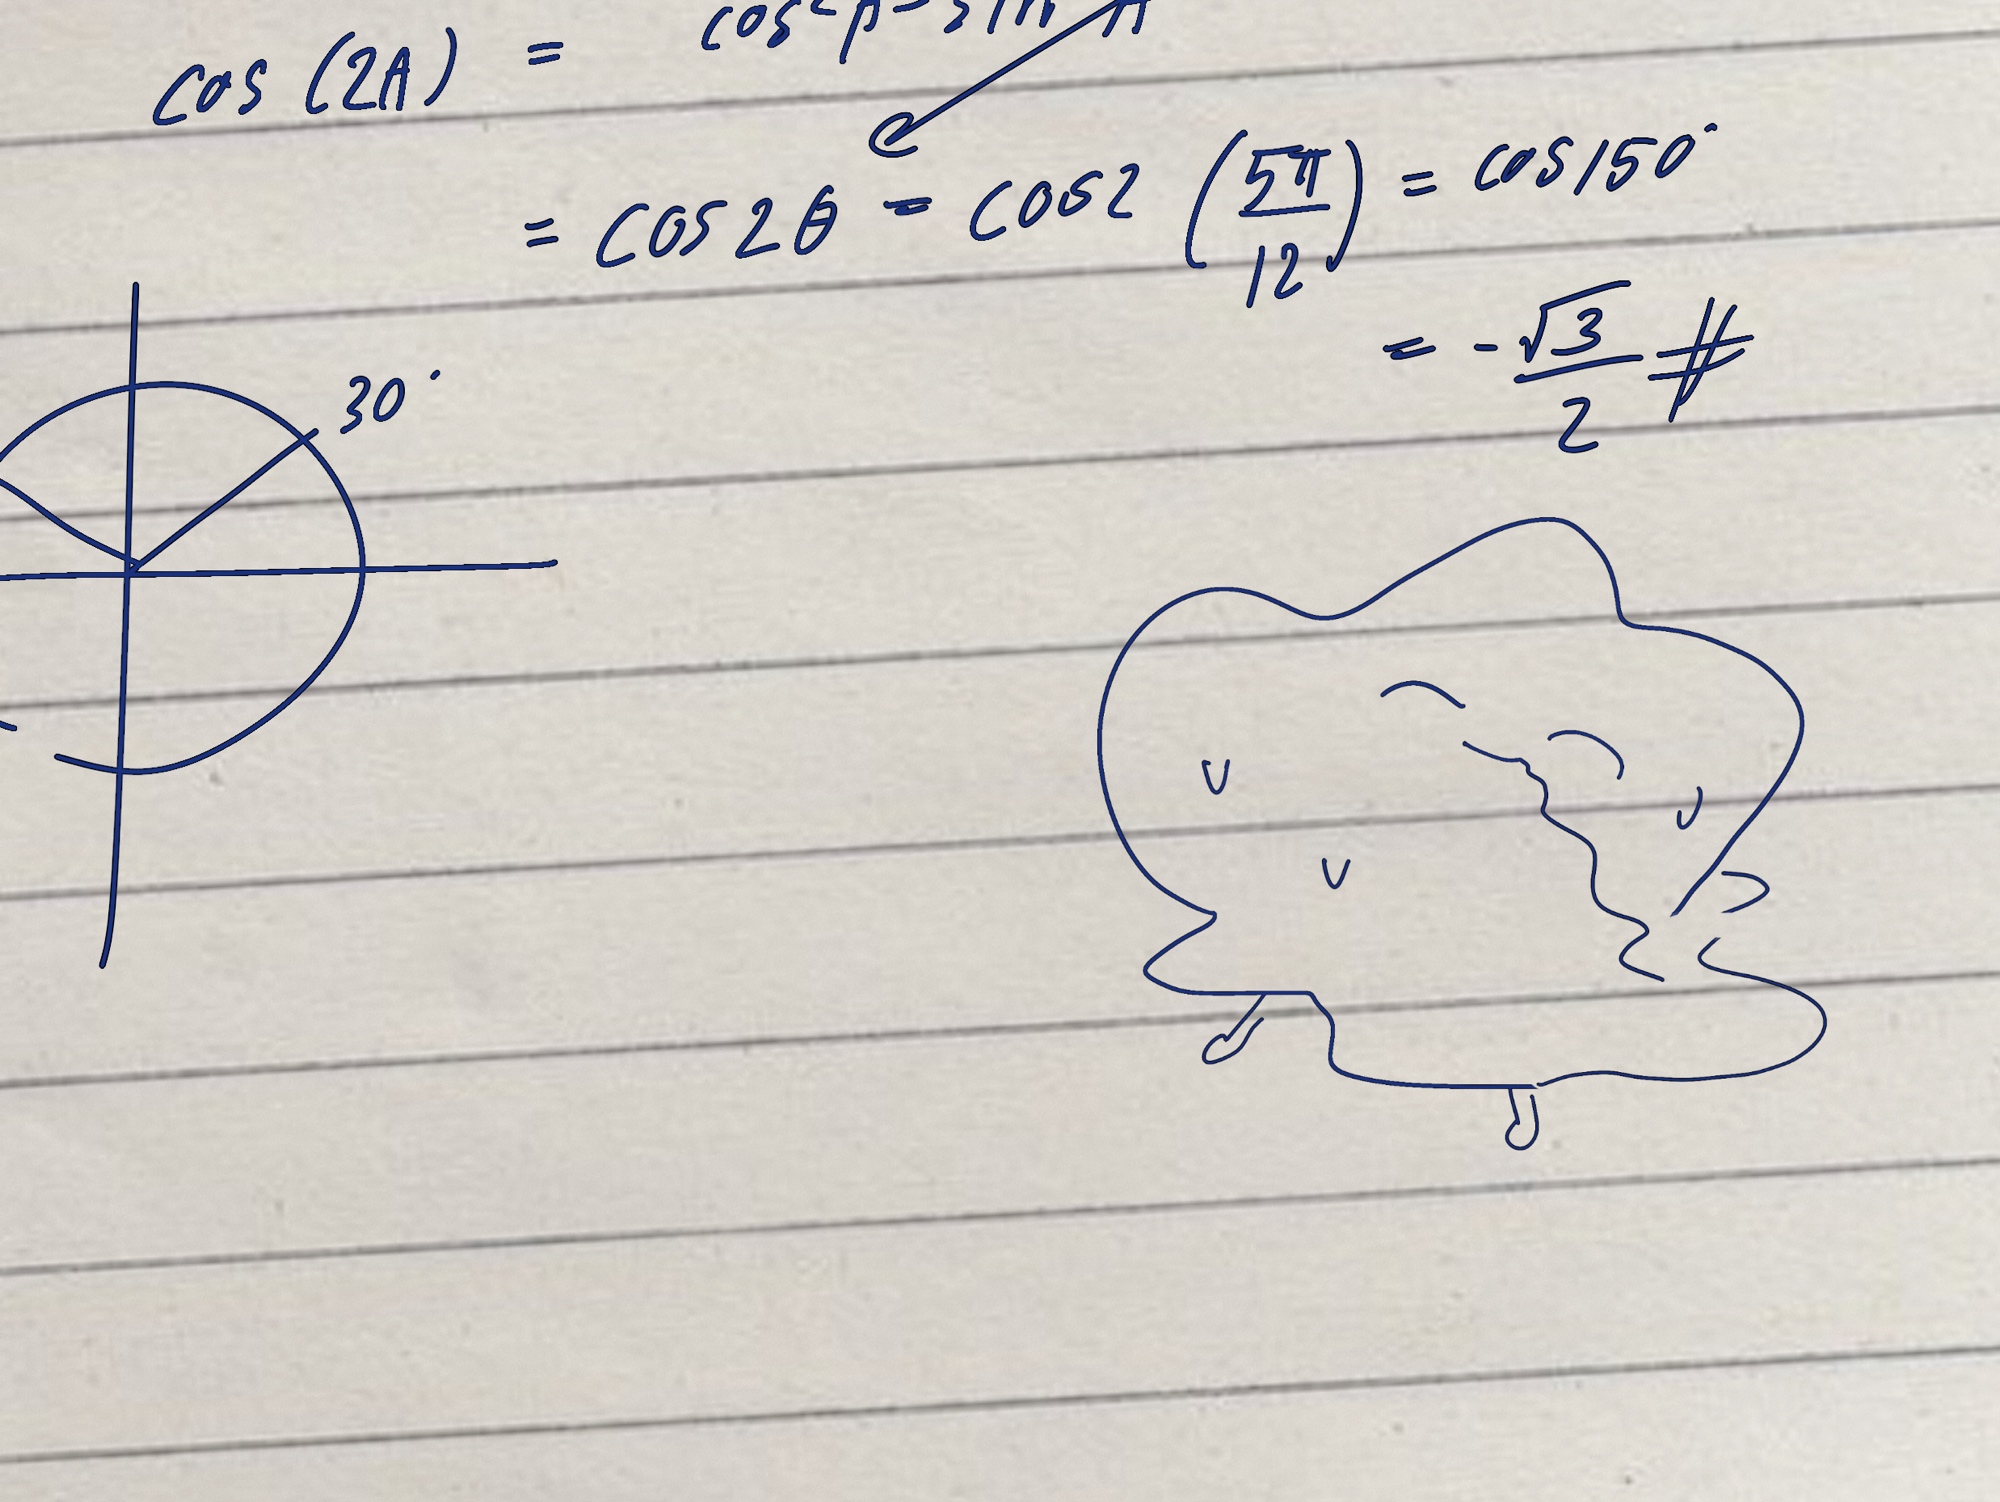 cos (2A) = cos²A - sin²A
= cos 2θ = cos 2 (5π/12) = cos 150°
= -√3/2 #
30°